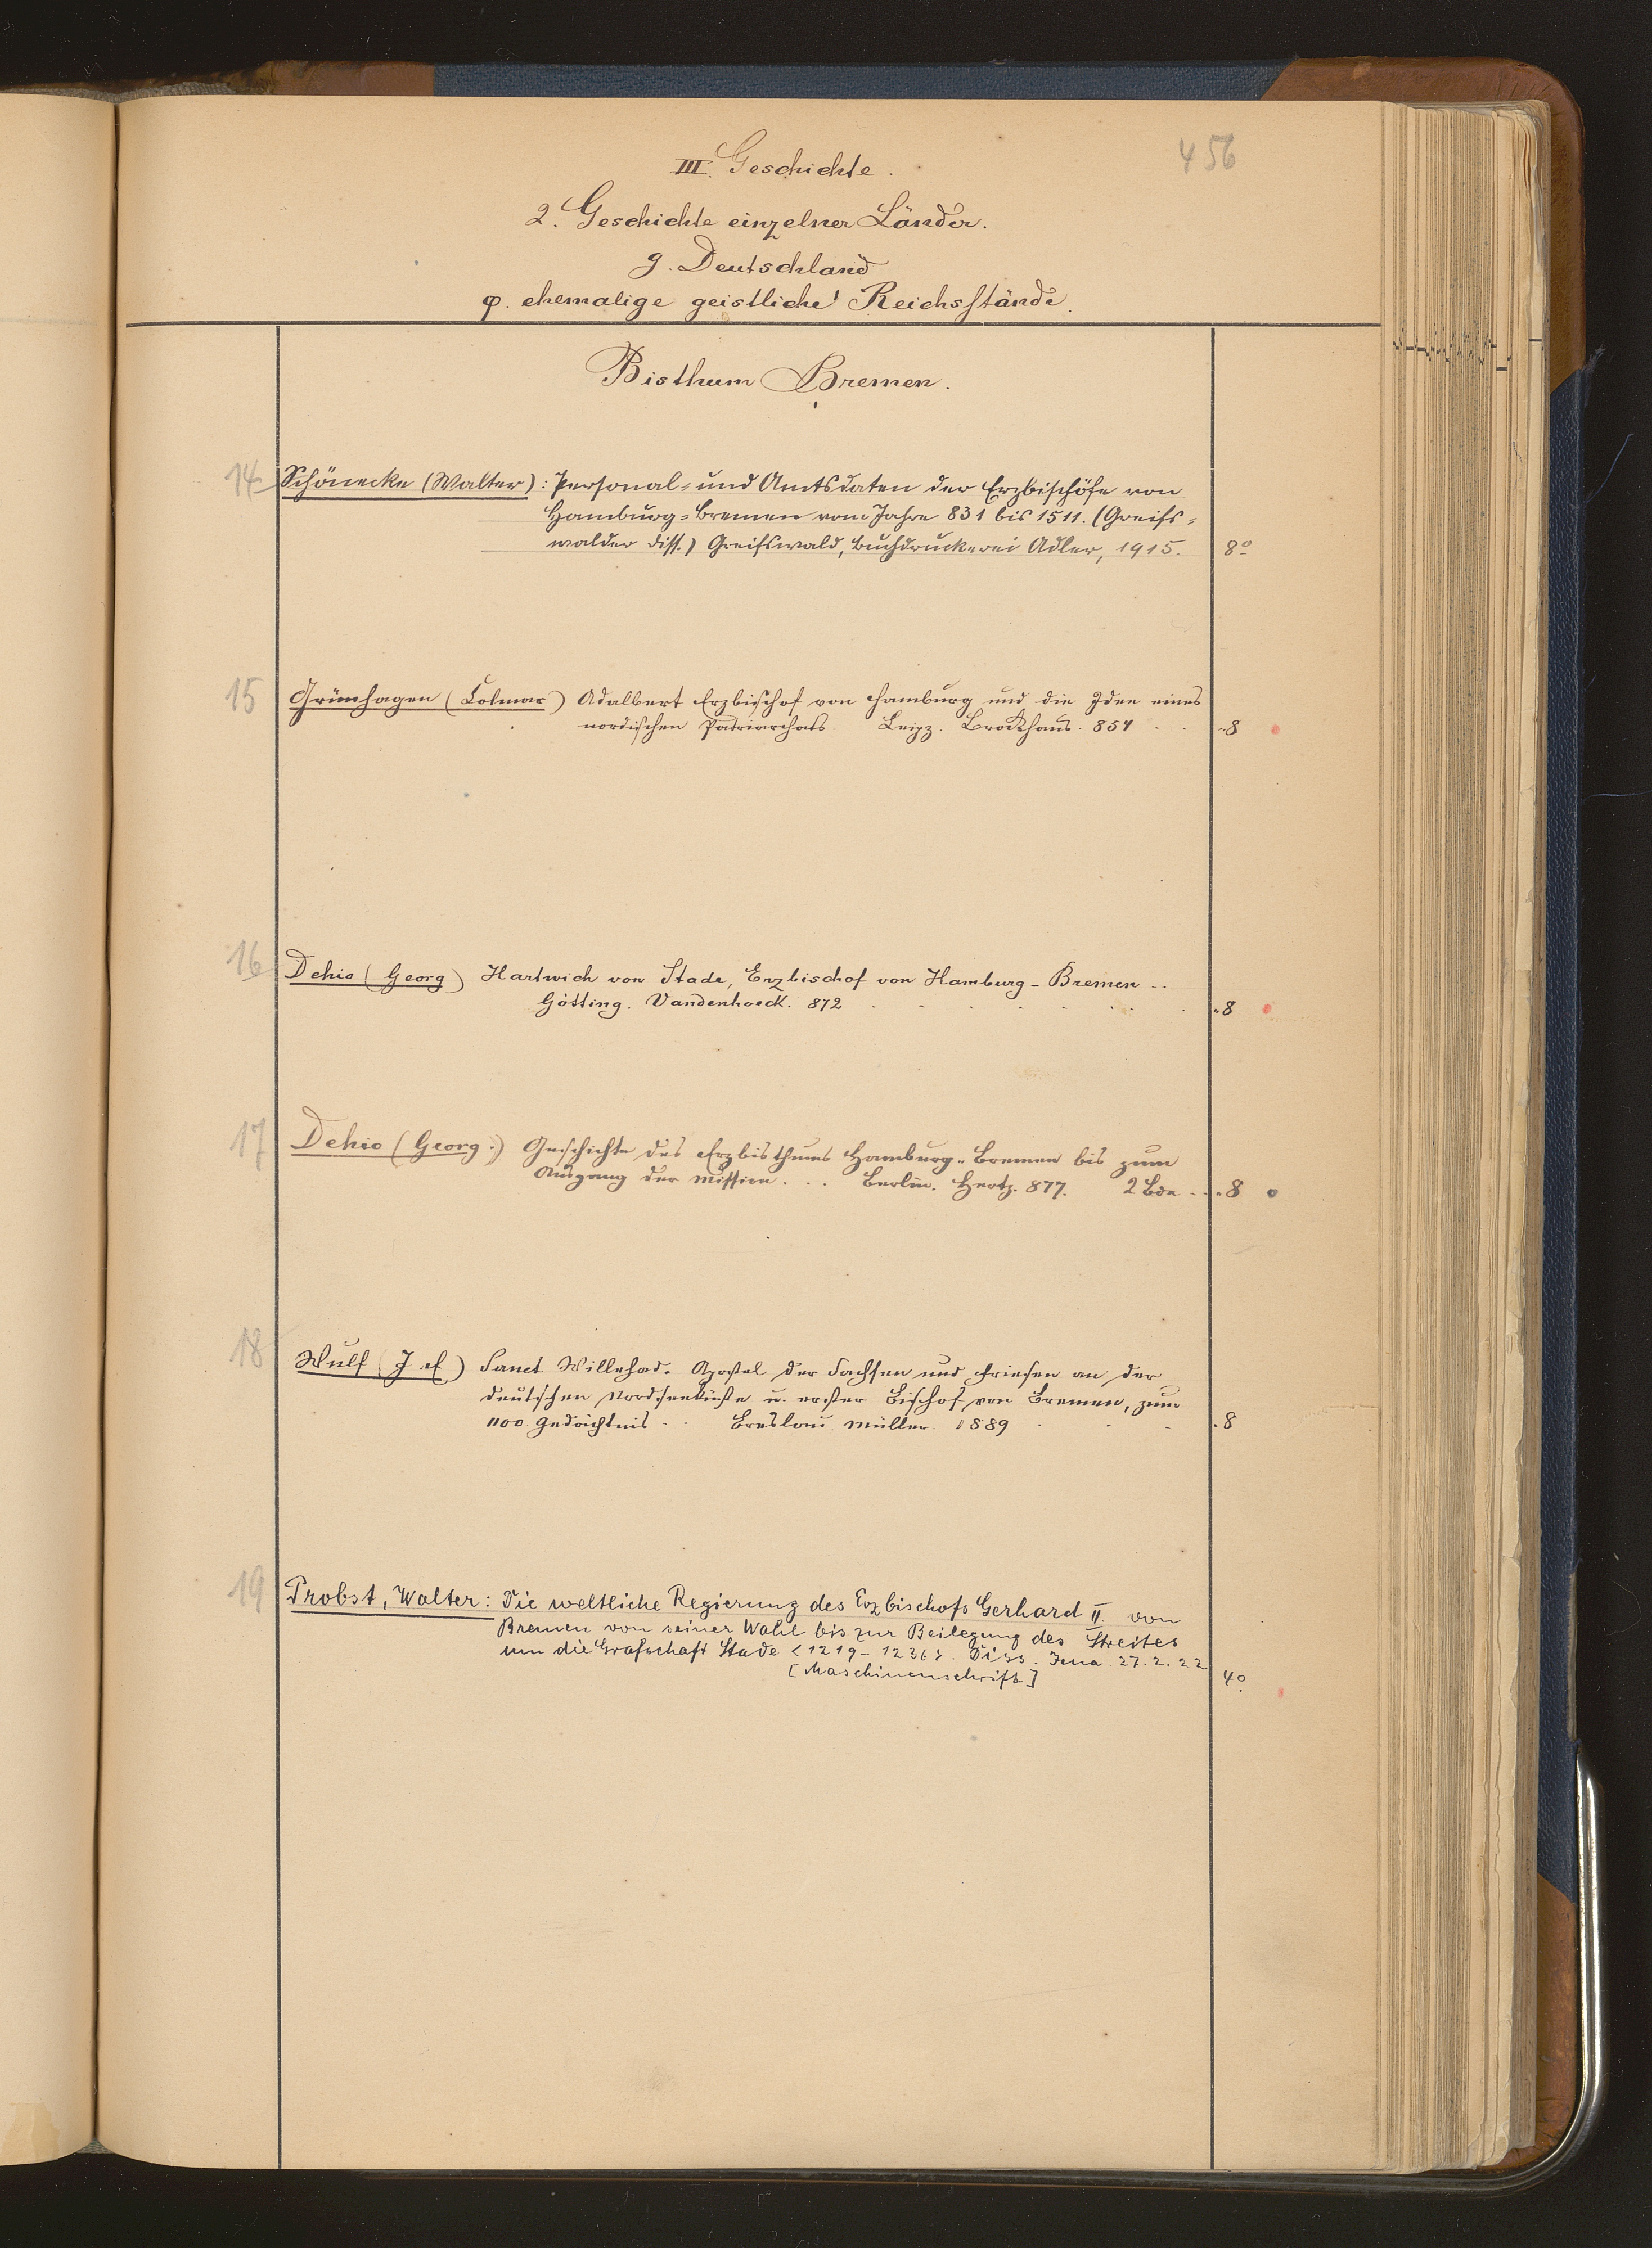 456
III. Geschichte.
2. Geschichte einzelner Länder.
g. Deutschland
φ. ehemalige geistliche Reichsstände.
Bisthum Bremen.
14 Schönecke (Walter): Personal- und Amtsdaten der Erzbischöfe von
Hamburg-Bremen vom Jahre 831 bis 1511. (Greifs-
walder Diss.) Greifswald, Buchdruckerei Adler, 1915. 8°
15 Grünhagen (Colmar) Adalbert Erzbischof von Hamburg und die Idee eines
nordischen Patriarchats Leipz. Brockhaus. 854 . . „8
16 Dehio (Georg) Hartwich von Stade, Erzbischof von Hamburg-Bremen ..
Götting. Vandenhoeck. 872 . . . . . . . „8
17 Dehio (Georg.) Geschichte des Erzbisthums Hamburg-Bremen bis zum
Ausgang der Mission. . . Berlin. Hertz. 877. 2 Bde . . . 8
18 Wulf (J f) Sanct Willehad. Apostel der Sachsen und Friesen an der
deutschen Nordseeküste u. erster Bischof von Bremen, zum
1100. Gedächtnis . . Breslau. Müller. 1889 . . . . 8
19 Probst, Walter: Die weltliche Regierung des Erzbischofs Gerhard II. von
Bremen von seiner Wahl bis zur Beilegung des Streites
um die Grafschaft Stade <1219-1236>. Diss. Jena 27.2.22
[Maschinenschrift] 4°